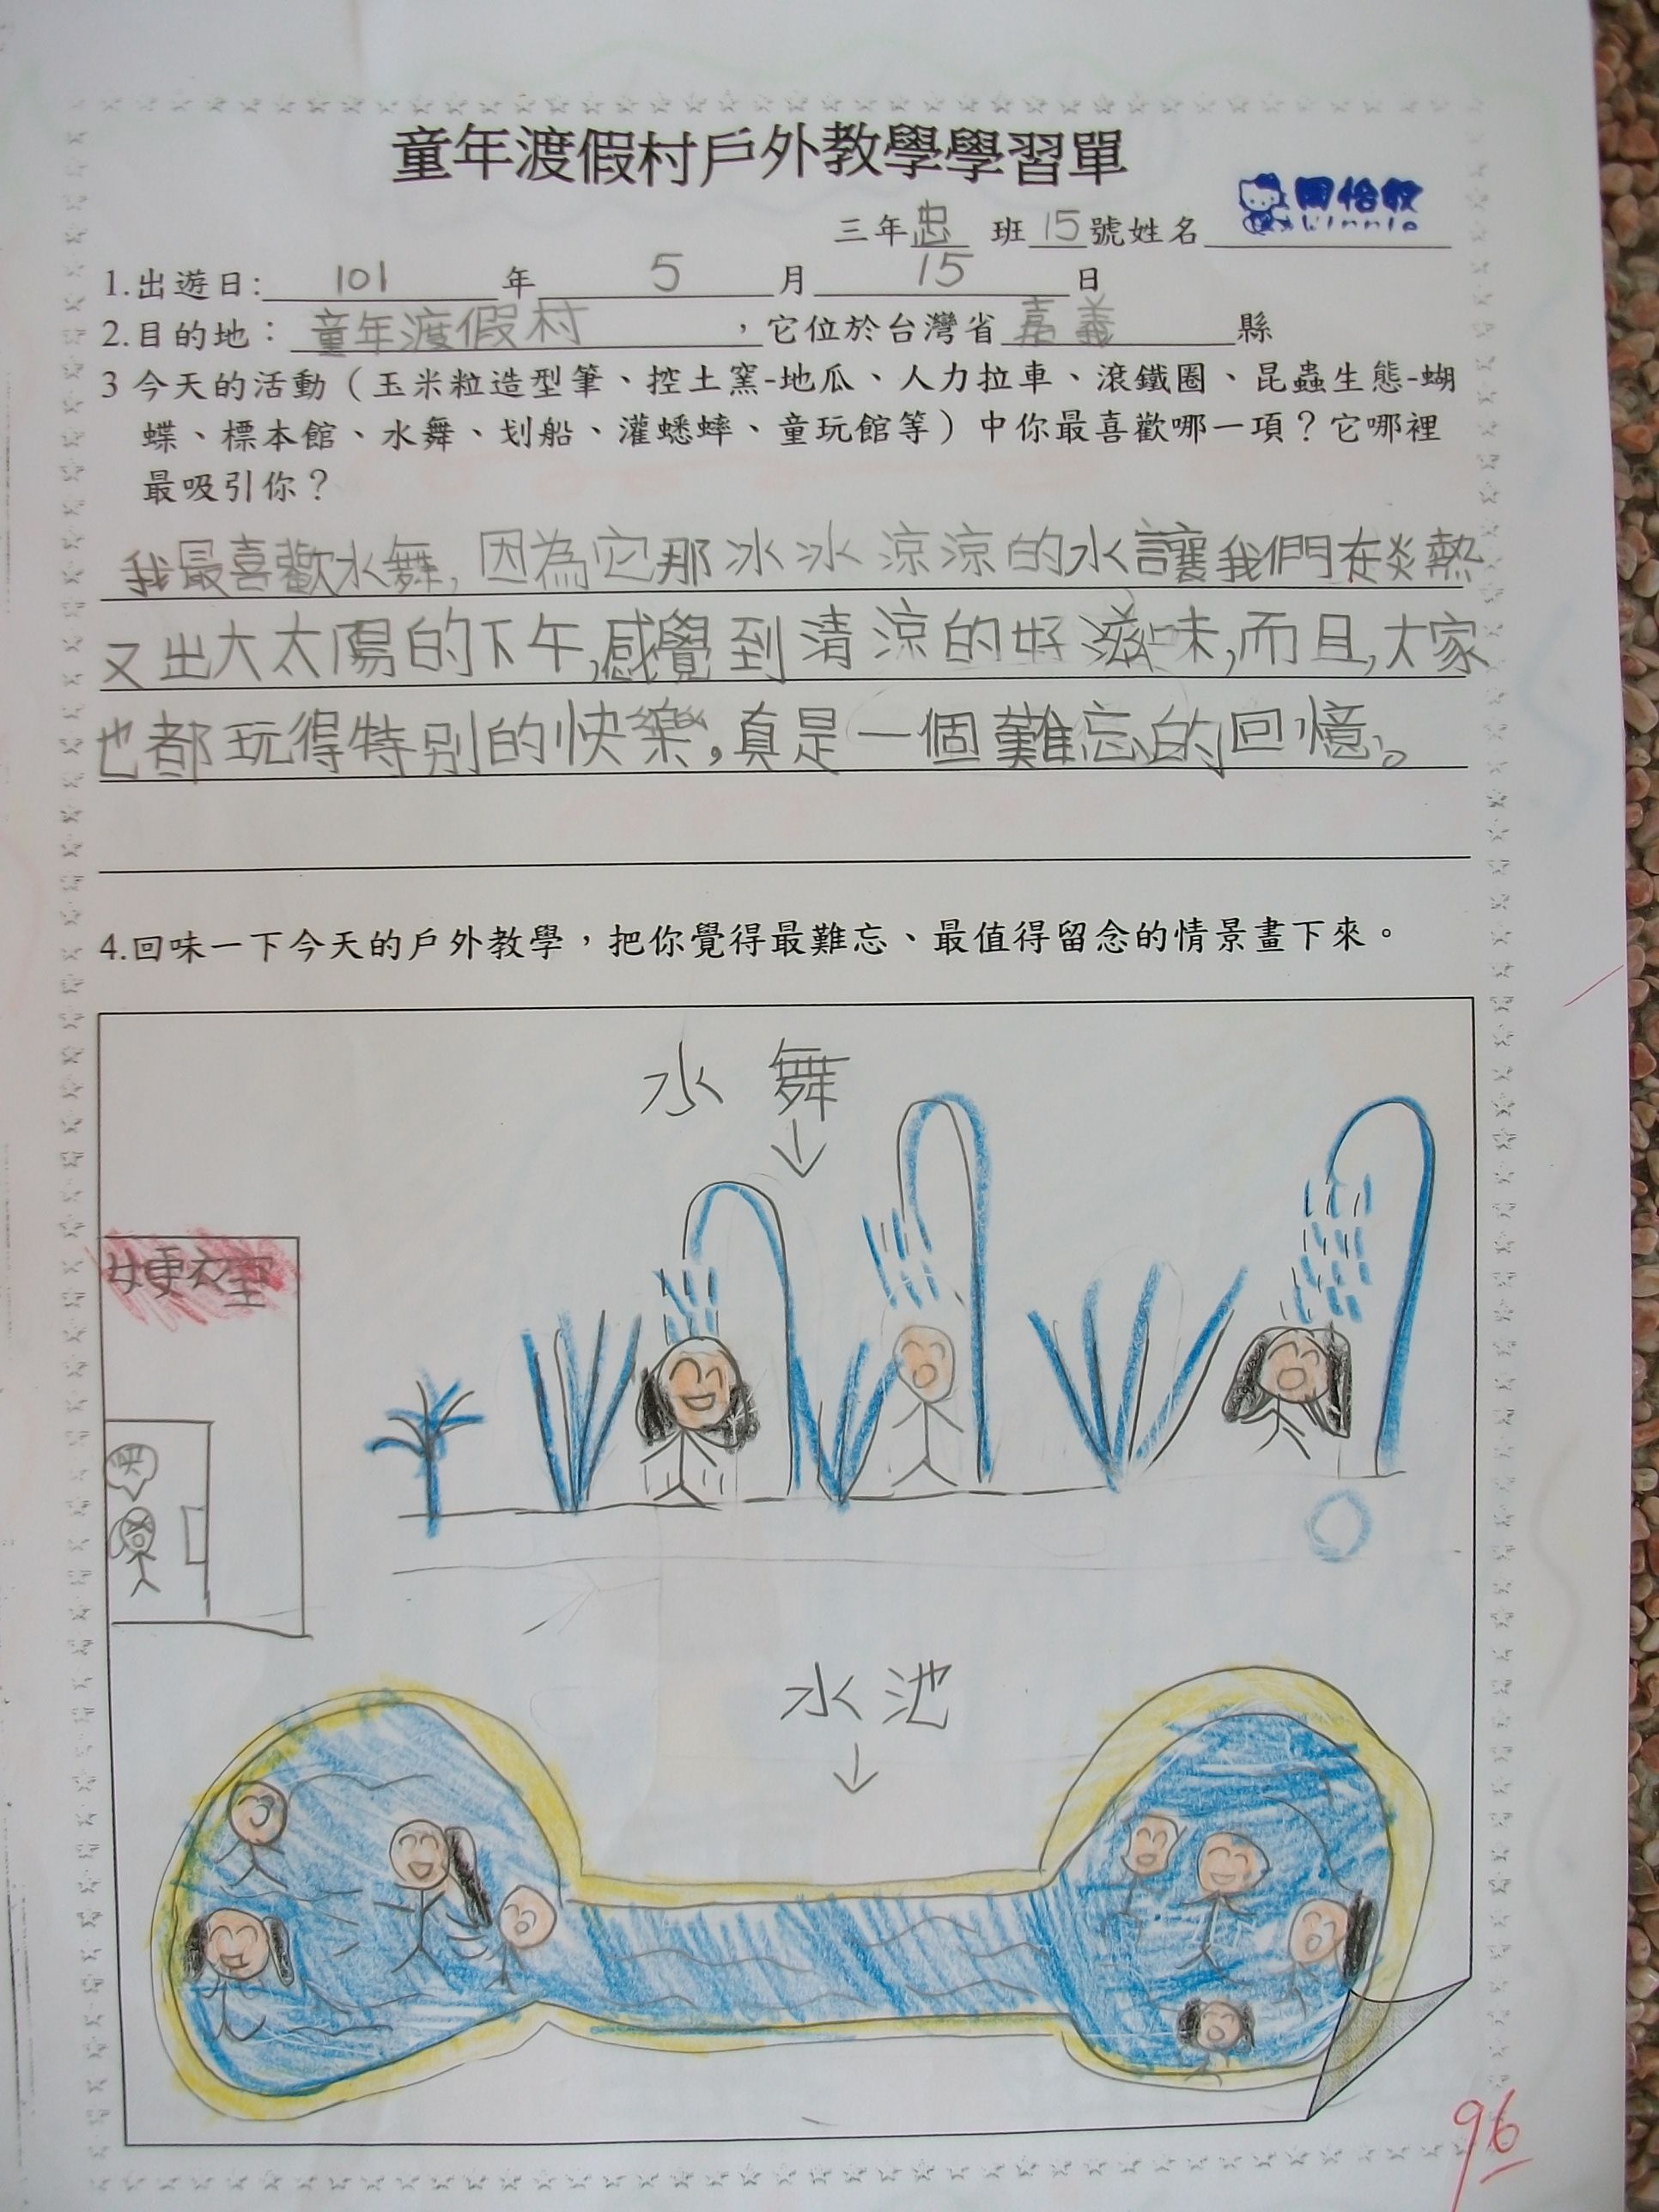 童年渡假村戶外教學學習單
三年忠 班15號姓名
Winnie
1.出遊日: 101 年 5 月 15 日
2.目的地：童年渡假村 ，它位於台灣省嘉義縣
3 今天的活動（玉米粒造型筆、控土窯-地瓜、人力拉車、滾鐵圈、昆蟲生態-蝴
蝶、標本館、水舞、划船、灌蟋蟀、童玩館等）中你最喜歡哪一項？它哪裡
最吸引你？
我最喜歡水舞，因為它那冰冰涼涼的水讓我們在炎熱
又出大太陽的下午，感覺到清涼的好滋味，而且，大家
也都玩得特別的快樂，真是一個難忘的回憶。
4.回味一下今天的戶外教學，把你覺得最難忘、最值得留念的情景畫下來。
水舞
↓
女更衣室
水池
↓
96